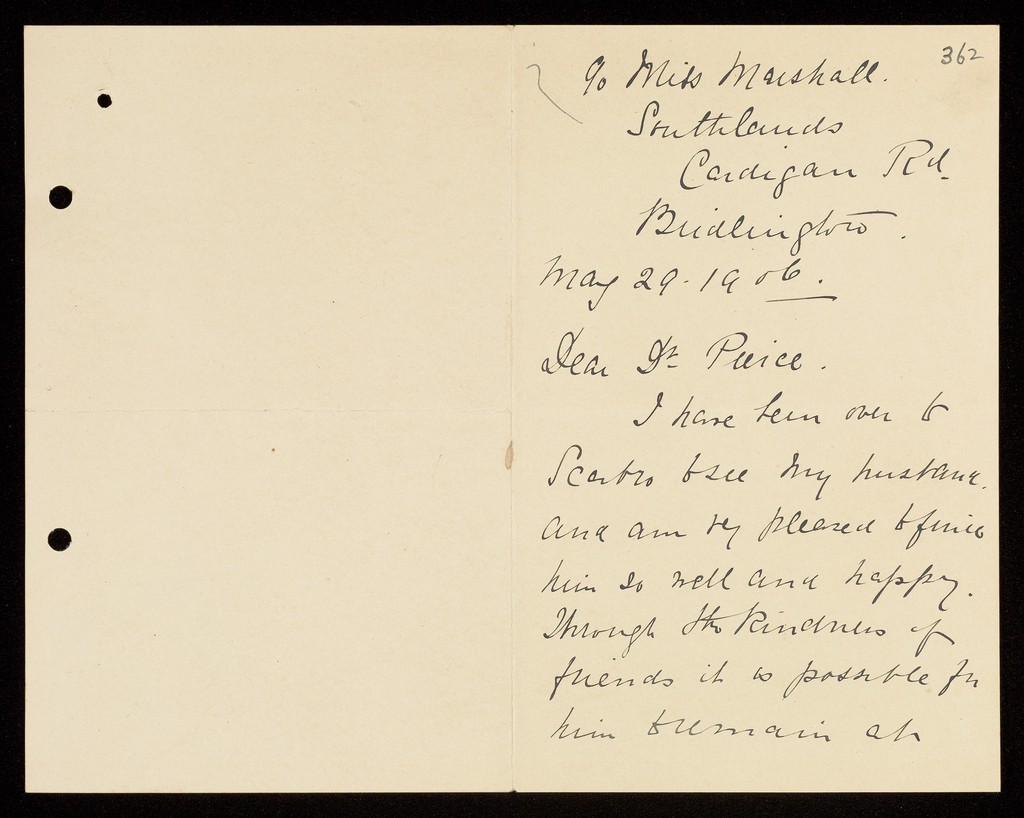 362
c/o Miss Marshall.
Southlands
Cardigan Rd.
Bridlington.
May 29. 1906.
Dear Dr Pierce.
I have been over to
Scarbro to see my husband.
and am vy pleased to find
him so well and happy.
Through the kindness of
friends it is possible for
him to remain at